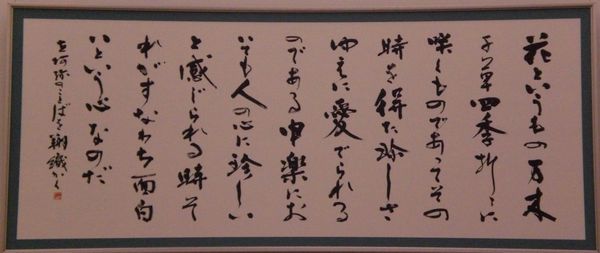 花というもの万木
千草四季折々に
咲くものであってその
時を得た珍しさ
ゆえに愛でられる
のである申楽にお
いても人の心に珍しい
と感じられる時そ
れがすなわち面白
いという心なのだ
世阿弥のことばを